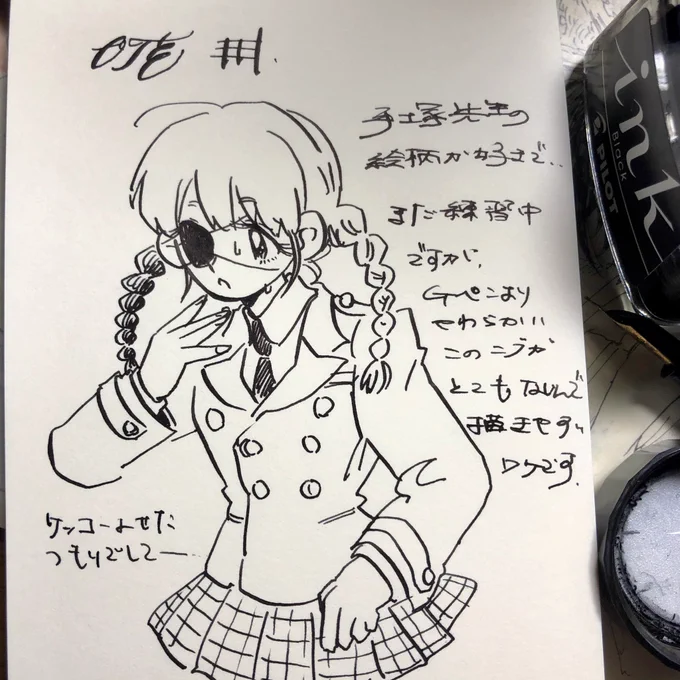 手塚先生の
絵柄が好きで..
まだ練習中
ですが、
Gペンより
やわらかい
このニブが
とてもなじんで
描きやすい
ワケです.
ケッコーよせた
つもりでして—
ink
Black
PILOT